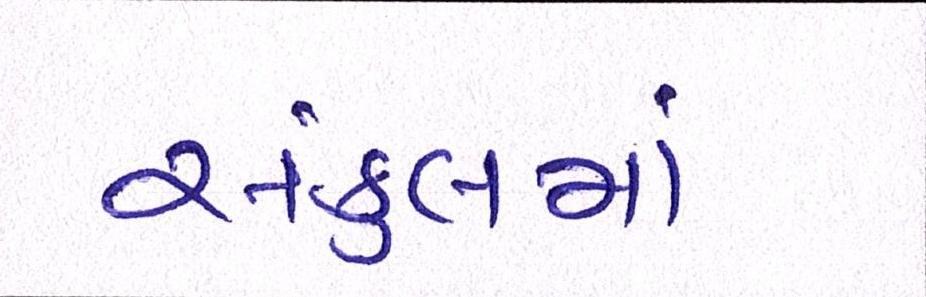 સંકુલમાં